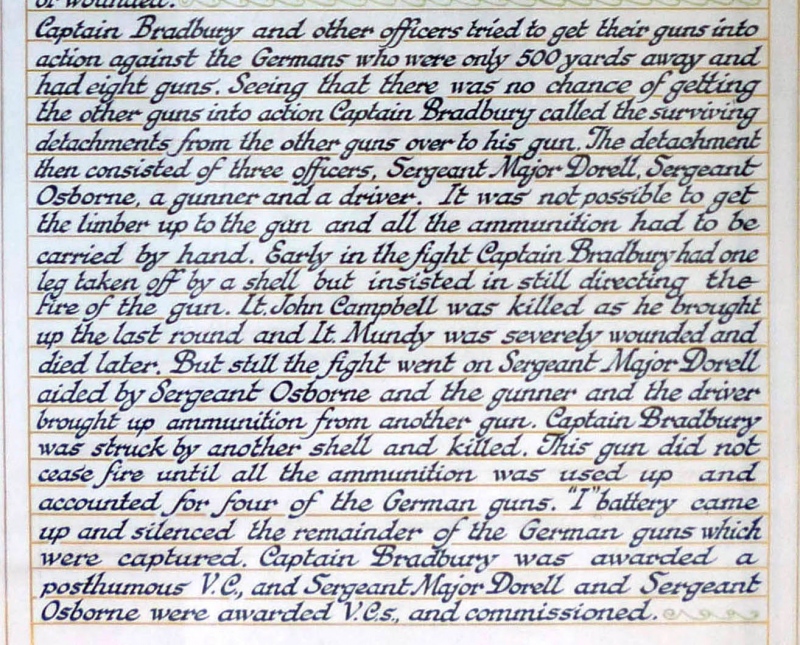 or wounded.
Captain Bradbury and other officers tried to get their guns into
action against the Germans who were only 500 yards away and
had eight guns. Seeing that there was no chance of getting
the other guns into action Captain Bradbury called the surviving
detachments from the other guns over to his gun. The detachment
then consisted of three officers, Sergeant Major Dorell, Sergeant
Osborne, a gunner and a driver. It was not possible to get
the limber up to the gun and all the ammunition had to be
carried by hand. Early in the fight Captain Bradbury had one
leg taken off by a shell but insisted in still directing the
fire of the gun. Lt. John Campbell was killed as he brought
up the last round and Lt. Mundy was severely wounded and
died later. But still the fight went on Sergeant Major Dorell
aided by Sergeant Osborne and the gunner and the driver
brought up ammunition from another gun. Captain Bradbury
was struck by another shell and killed. This gun did not
cease fire until all the ammunition was used up and
accounted for four of the German guns. "I" battery came
up and silenced the remainder of the German guns which
were captured. Captain Bradbury was awarded a
posthumous V.C., and Sergeant Major Dorell and Sergeant
Osborne were awarded V.C.s., and commissioned.